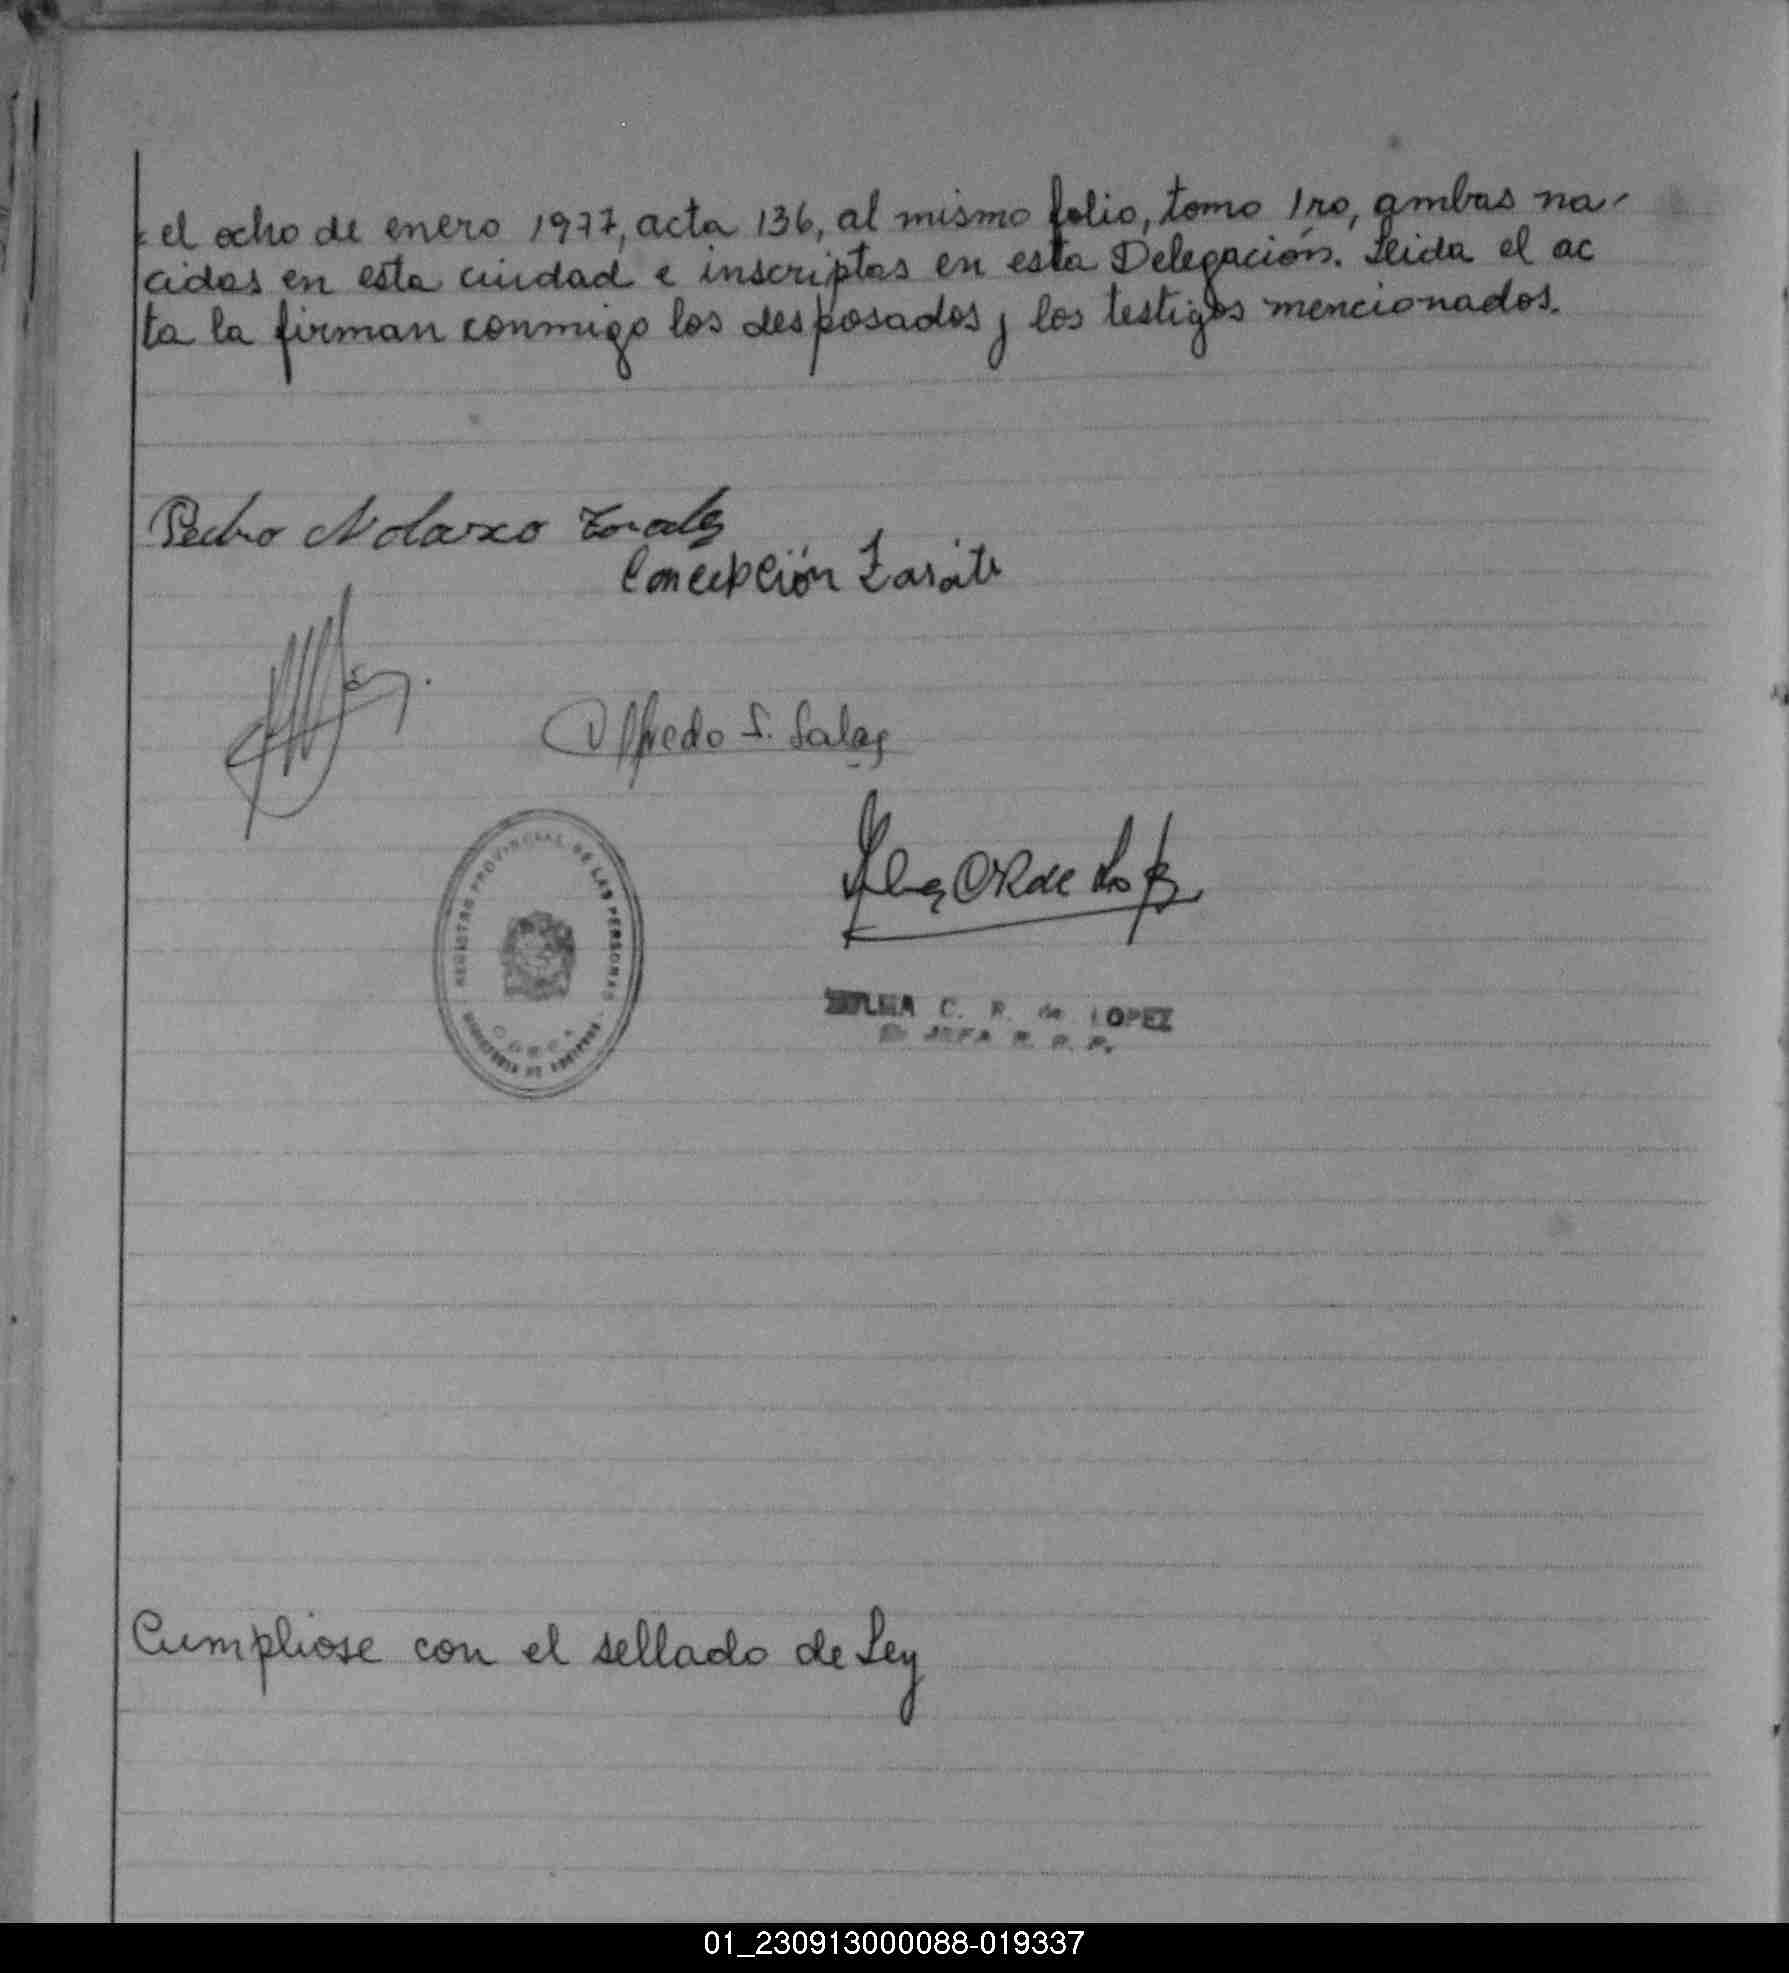 el ocho de enero 1977, acta 136, al mismo folio, tomo 1ro, ambas na-
cidas en esta ciudad e inscriptas en esta Delegación. Leida el ac
ta la firman conmigo los desposados y los testigos mencionados.
Pedro Nolasco
Concepción Zarate
Alfredo S. Salas
REGISTRO PROVINCIAL DE LAS PERSONAS
C. R. de LOPEZ
JEFA R. P. P.
Cumpliose con el sellado de Ley
01_230913000088-019337